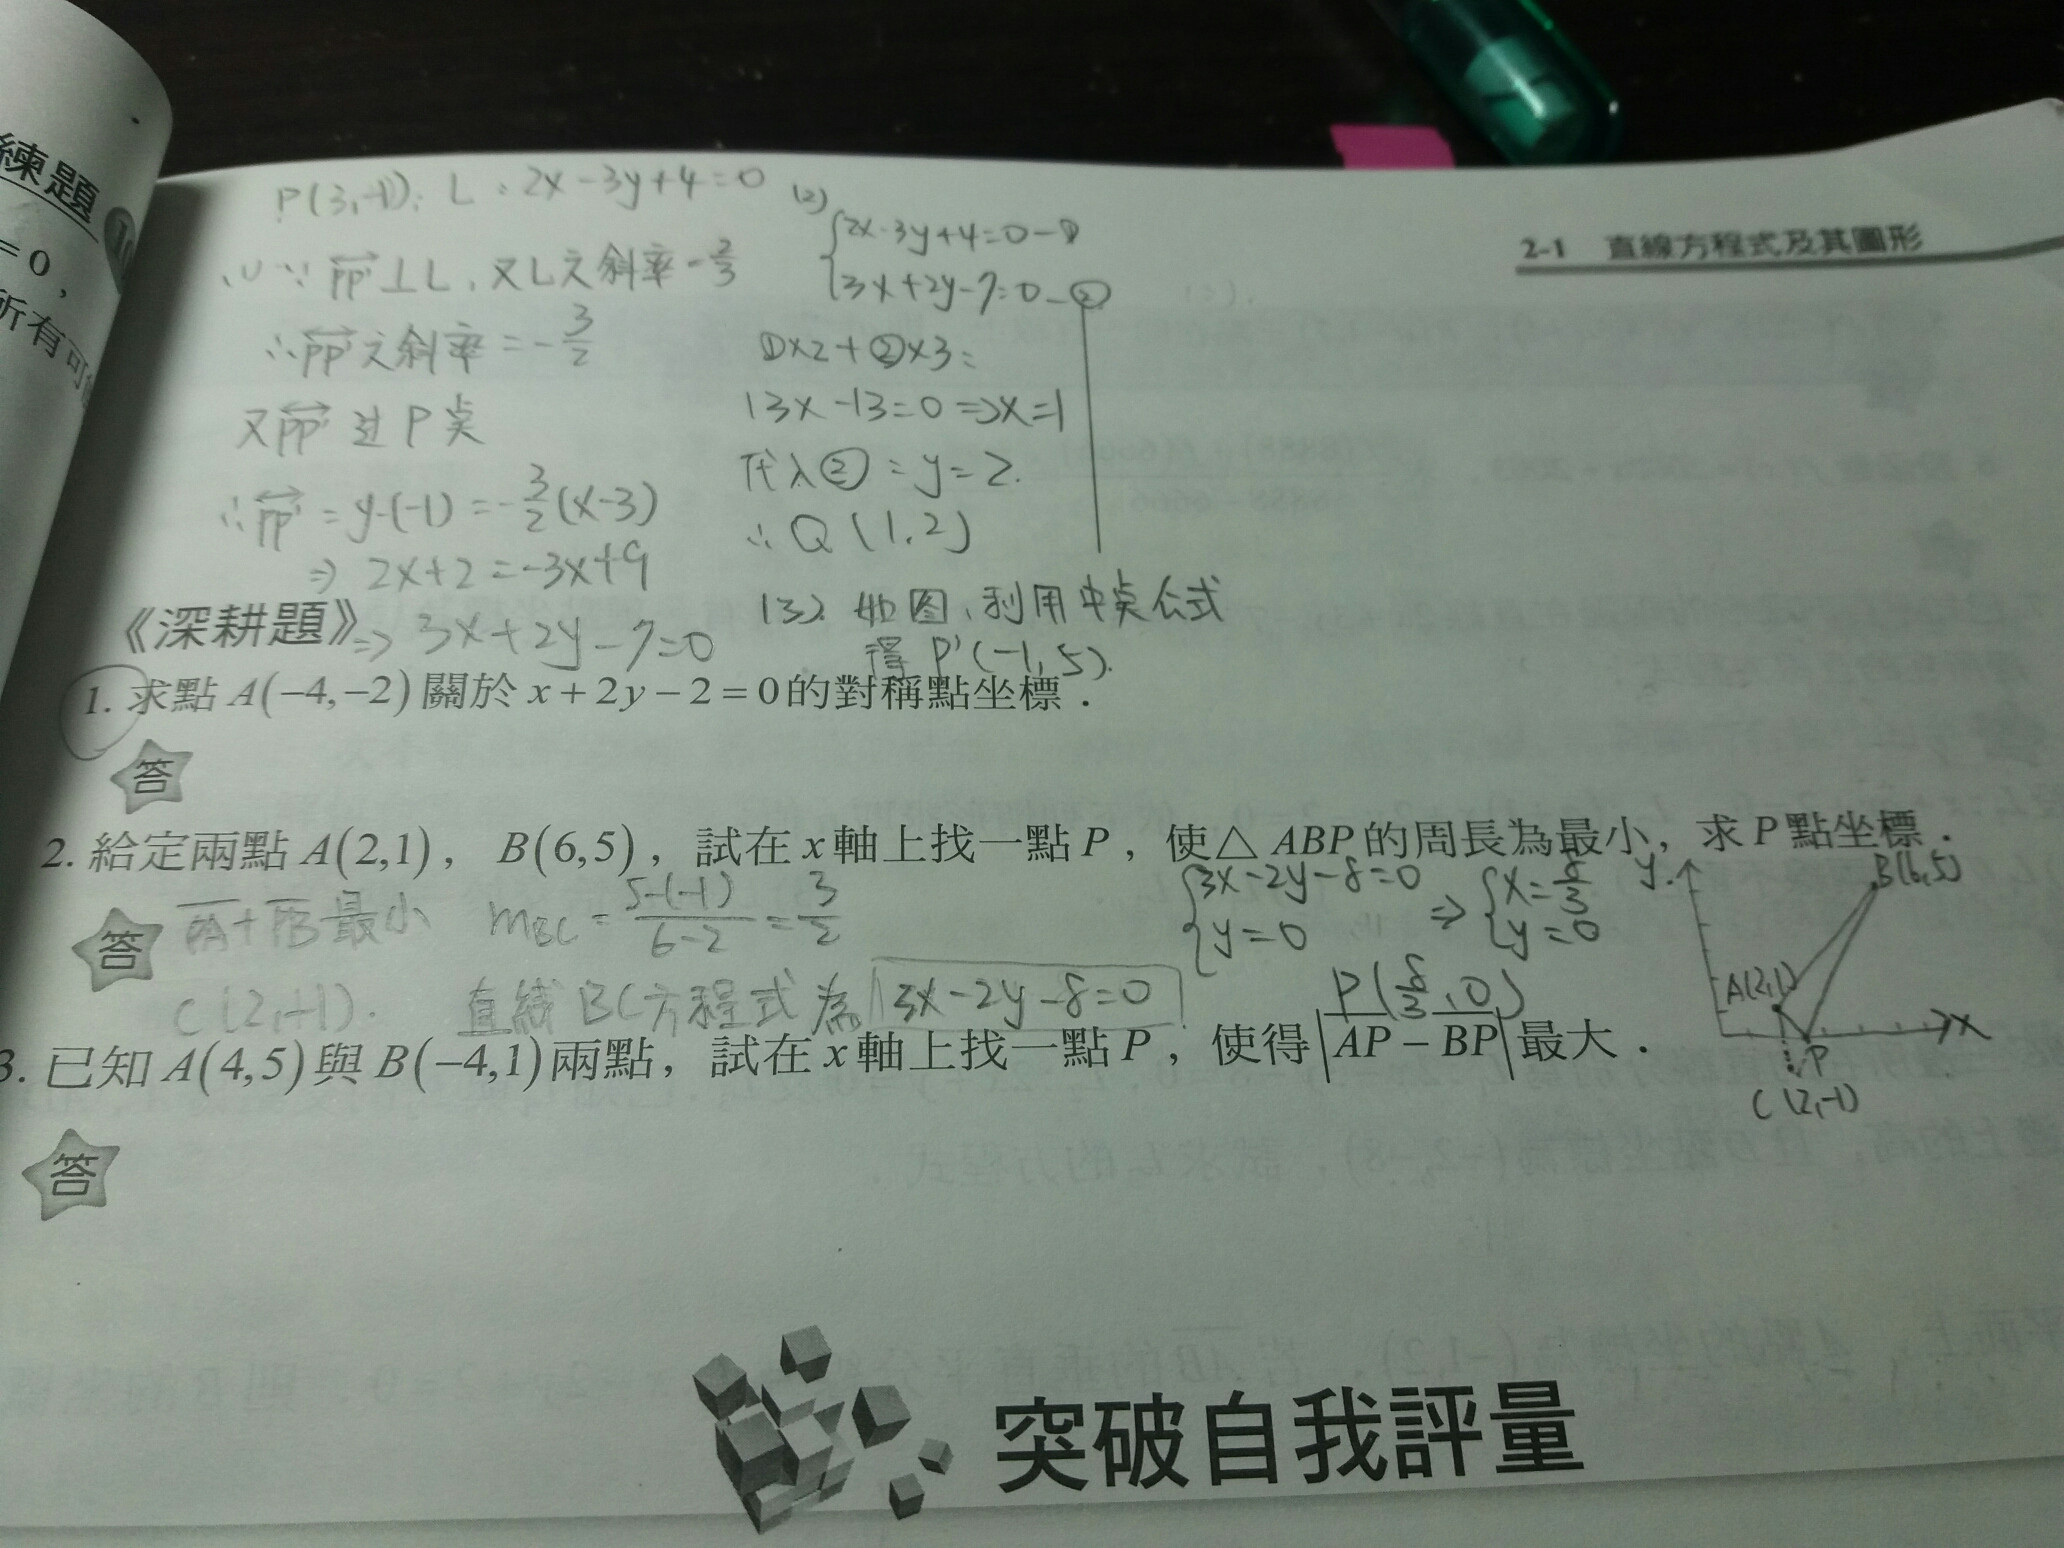 練題
= 0 ,
所有可
P(3,-1); L : 2x-3y+4=0
(1) ∵ PP' ⊥ L , 又L之斜率=2/3
∴ PP' 之斜率 = -3/2
又PP' 过 P 点
∴ PP' = y-(-1) = -3/2(x-3)
⇒ 2x+2=-3x+9
⇒ 3x+2y-7=0
(2)
2x-3y+4=0-①
3x+2y-7=0-②
①x2+②x3:
13x-13=0 ⇒x=1
代入② = y=2.
∴ Q (1,2)
(3). 如图,利用中点公式
得 P'(-1,5).
2-1 直線方程式及其圖形
《深耕題》
1. 求點 A(−4,−2) 關於 x+2y−2=0的對稱點坐標．
答
2. 給定兩點 A(2,1)， B(6,5)，試在 x 軸上找一點 P，使△ ABP 的周長為最小，求 P 點坐標．
答
PA+PB 最小 mBC = 5-(-1)/6-2 = 3/2
C(2,-1). 直线 BC方程式為 3x-2y-8=0
3x-2y-8=0 ⇒ x=8/3
y=0 y=0
P(8/3,0)
y
B(6,5)
A(2,1)
x
P
C(2,-1)
3. 已知 A(4,5) 與 B(−4,1) 兩點，試在 x 軸上找一點 P，使得|AP − BP|最大．
答
突破自我評量